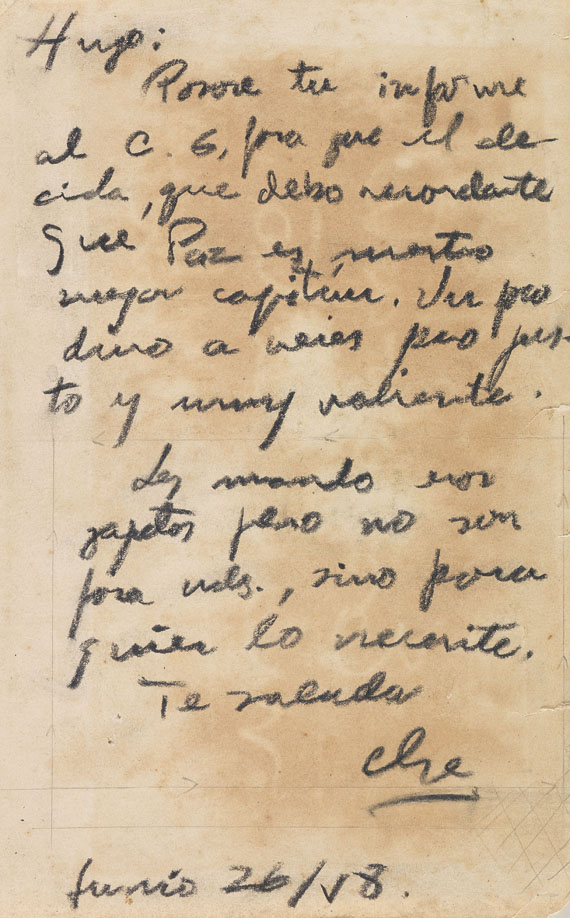 Hugo:
Pasare tu informe
al C. G, para que el de-
cida, que debo recordarte
que Paz es nuestro
mejor capitán. Un poco
duro a veces pero jus-
to y muy valiente.
Les mando esos
zapatos pero no son
para uds., sino para
quien lo necesite.
Te saluda
Che
Junio 26/58.